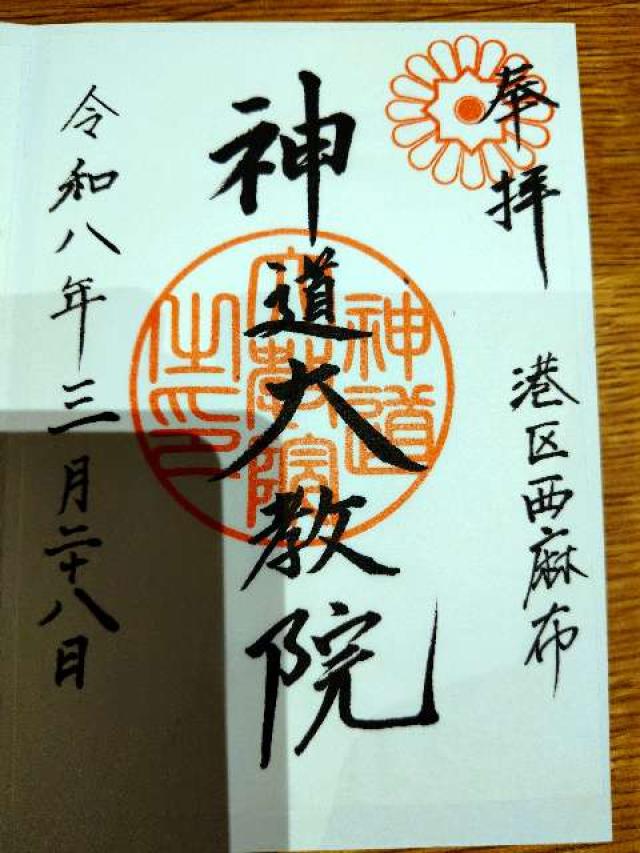 奉拝
港区西麻布
神道大教院
神道大教院之印
令和八年三月二十八日